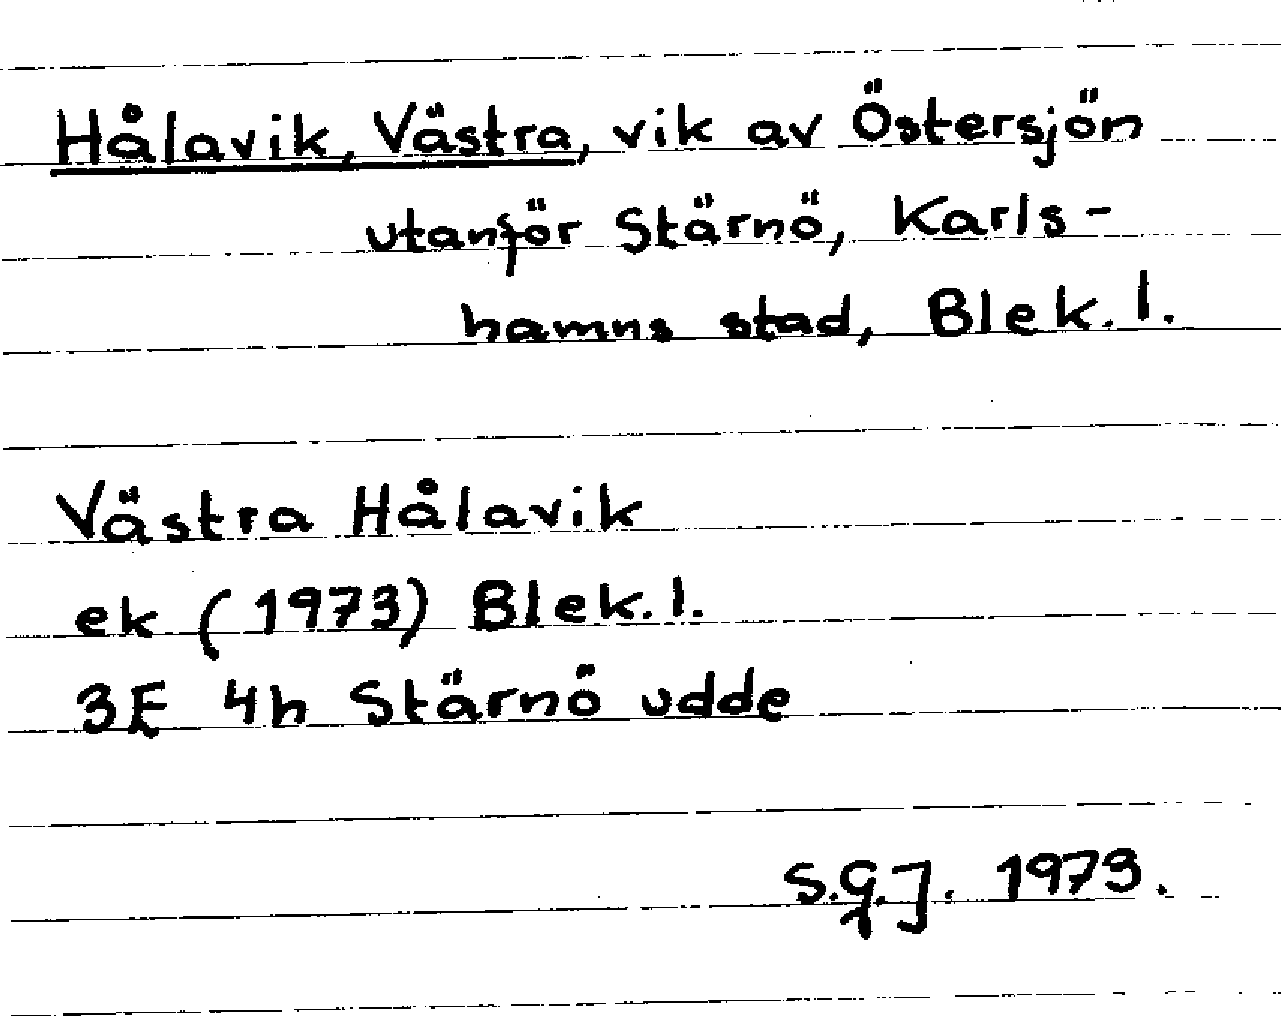 Hålavik, Västra, vik av Östersjön
utanför Stärnö, Karls-
hamns stad, Blek. l.
Västra Hålavik
ek (1973) Blek. l.
3E 4h Stärnö udde
S.G.J. 1973.